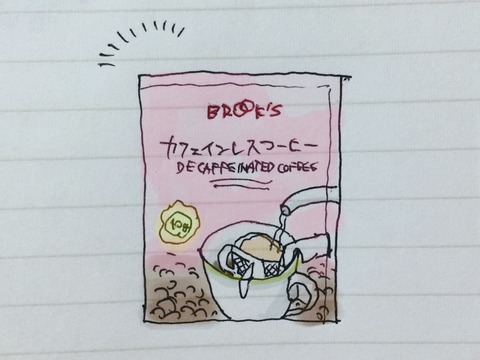 BROOK'S
カフェインレスコーヒー
DECAFFEINATED COFFEE